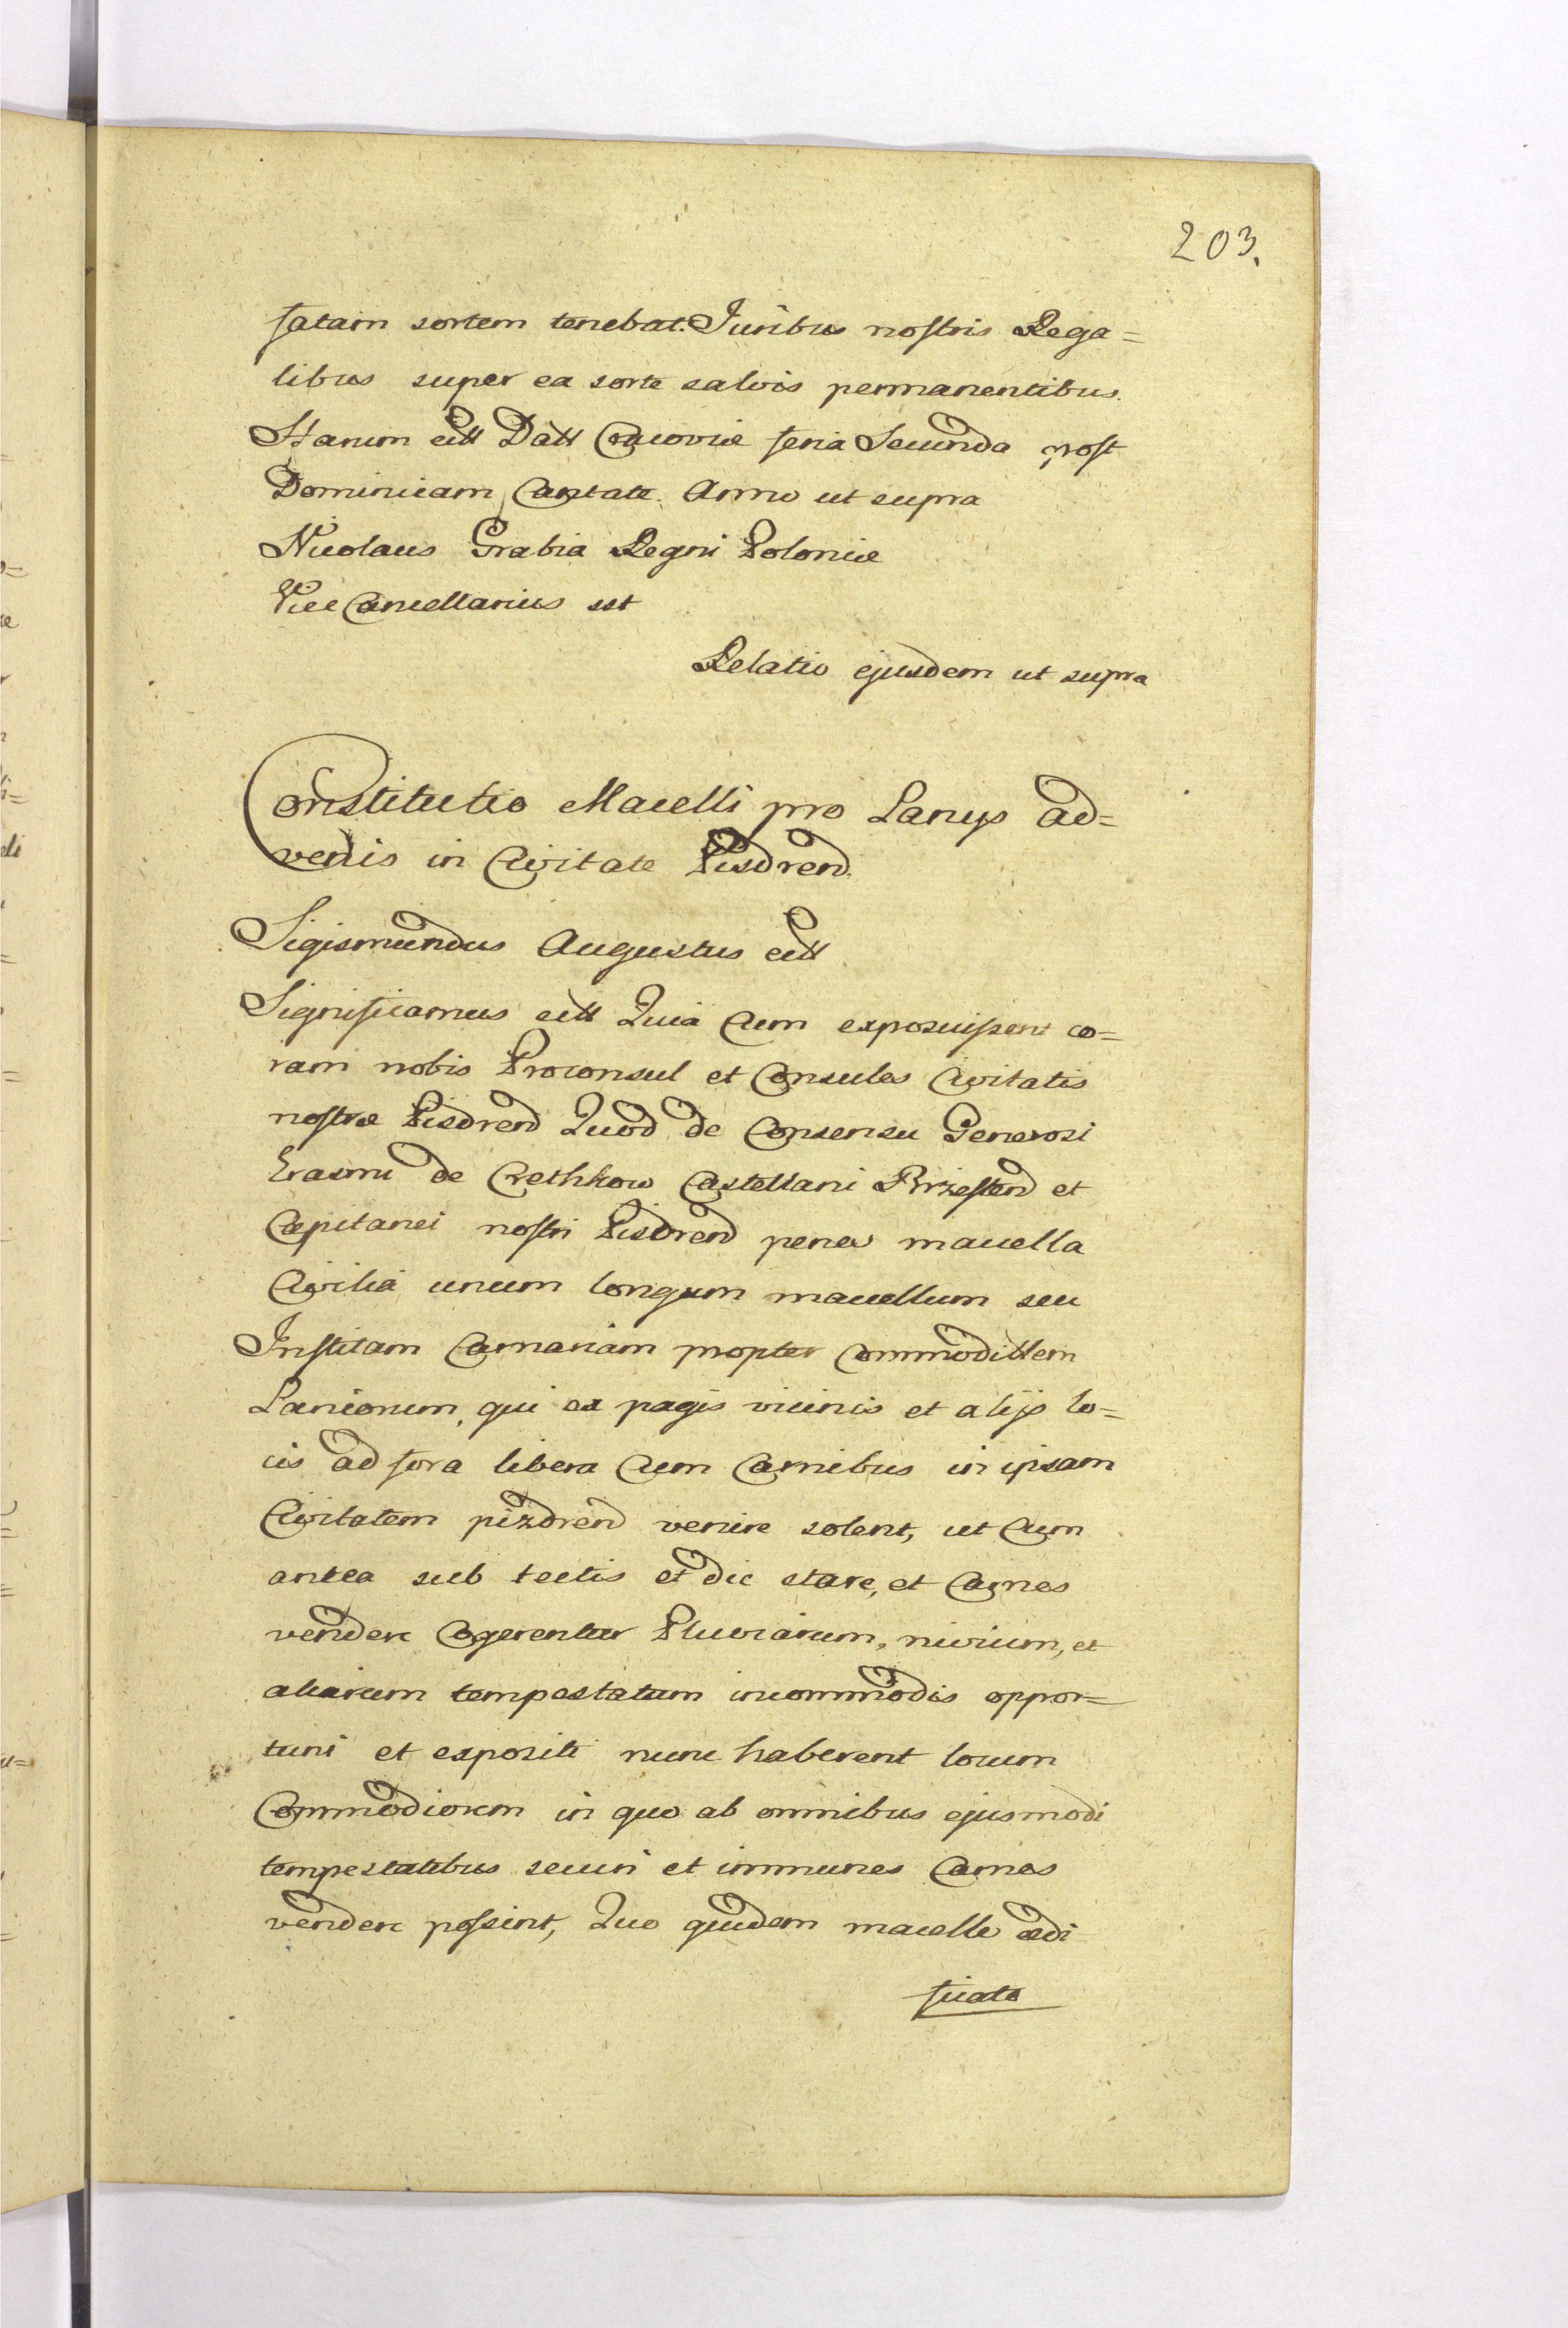 203.
fatam sortem tenebat. Juribus nostris Rega=
libus super ea sorte salvis permanentibus.
Harum ett Datt Cracoviæ feria Secunda post
Dominicam Cantate. Anno ut supra
Nicolaus Grabia Regni Poloniæ
Vice Cancellarius sst
Relatio ejusdem ut supra
Constitutio Macelli pro Lanijs ad=
venis in Civitate Pisdren.
Sigismundus Augustus ett
Significamus ett Quia Cum exposuissent co=
ram nobis Proconsul et Consules Civitatis
nostræ Pisdren Quod de Consensu Generosi
Erasmi de Crethkow Castellani Brzesten et
Capitanei nostri Pisdren penes macella
Civilia unum longum macellum seu
Institam Carnariam propter Commodittem
Lanionum, qui ex pagis vicinis et alijs lo=
cis ad fora libera Cum Carnibus in ipsam
Civitatem pizdren venire solent, ut Cum
antea sub tectis et dic stare, et Carnes
vendere Cogerentur Pluviarum, nivium, et
aliarum tempestatum incommodis oppor=
tuni et expositi nunc haberent locum
Commodiorem in quo ab omnibus ejusmodi
tempestatibus securi et immunes Carnes
vendere possint, Quo quidem macello ædi=
ficato